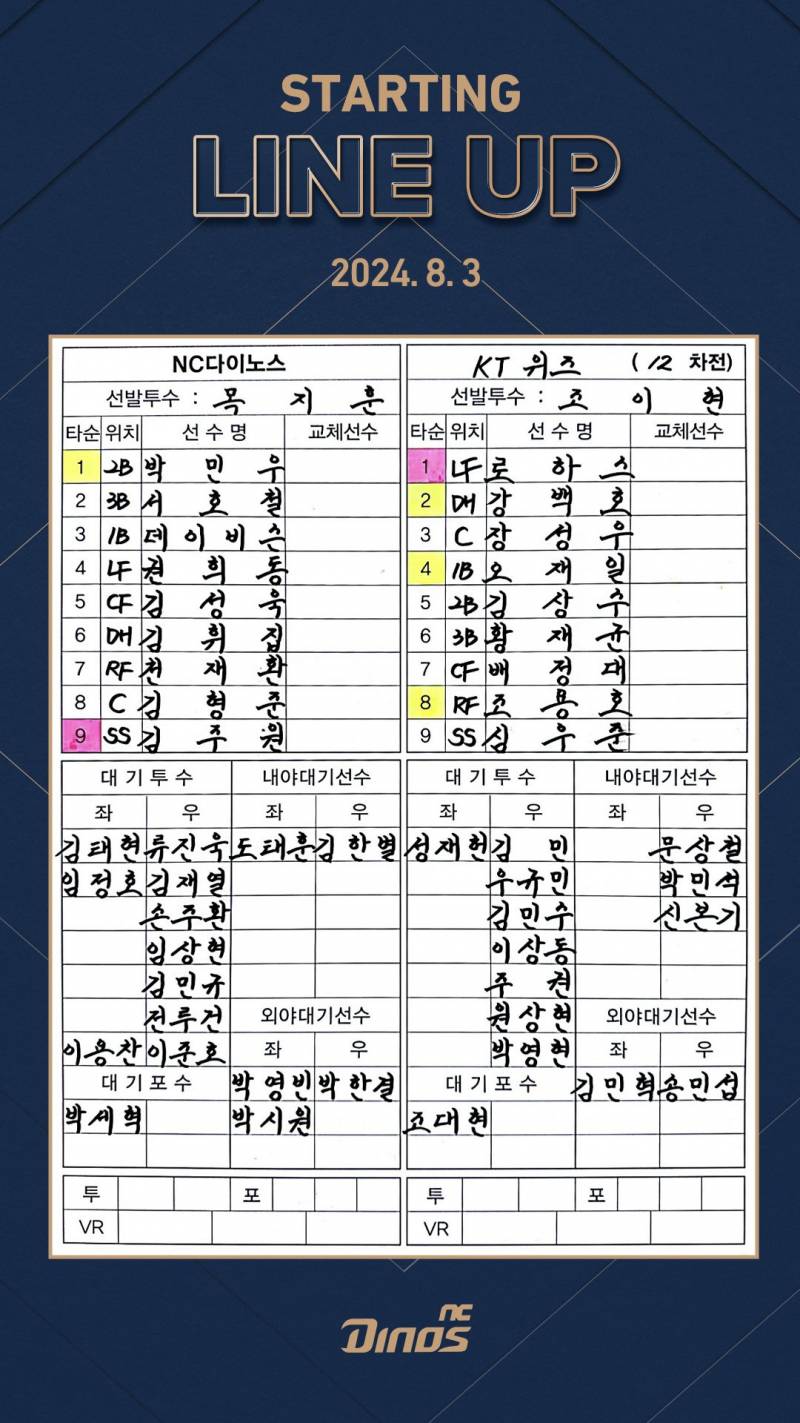 STARTING
LINE UP
2024. 8. 3
NC다이노스
선발투수 : 목지훈
타순 위치 선수명 교체선수
1 2B 박민우
2 3B 서호철
3 1B 데이비슨
4 LF 권희동
5 CF 김성욱
6 DH 김휘집
7 RF 천재환
8 C 김형준
9 SS 김주원
대기투수 내야대기선수
좌 우 좌 우
김태현 류진욱 도태훈 김한별
임정호 김재열
손주환
임상현
김민규
전루건
외야대기선수
이용찬 이준호 좌 우
대기포수 박영빈 박한결
박세혁 박시원
투 포
VR
KT 위즈 (12 차전)
선발투수 : 조이현
타순 위치 선수명 교체선수
1 LF 로하스
2 DH 강백호
3 C 장성우
4 1B 오재일
5 2B 김상수
6 3B 황재균
7 CF 배정대
8 RF 조용호
9 SS 심우준
대기투수 내야대기선수
좌 우 좌 우
성재헌 김민 문상철
우규민 박민석
김민수 신본기
이상동
주권
원상현 외야대기선수
박영현 좌 우
대기포수 김민혁 송민섭
조대현
투 포
VR
NC
DINOS